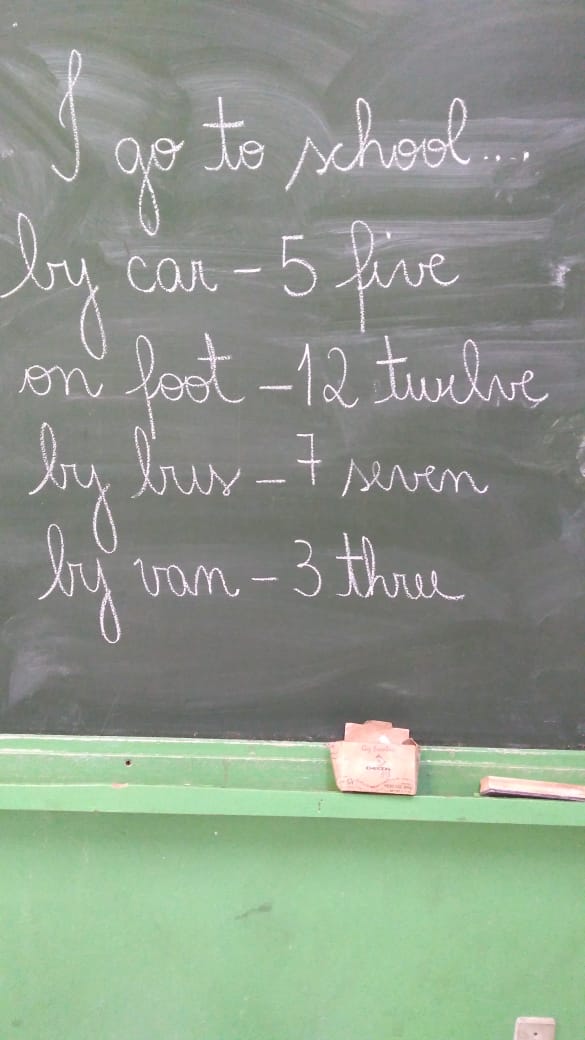 I go to school....
by car - 5 five
on foot - 12 twelve
by bus - 7 seven
by van - 3 three
DELTA